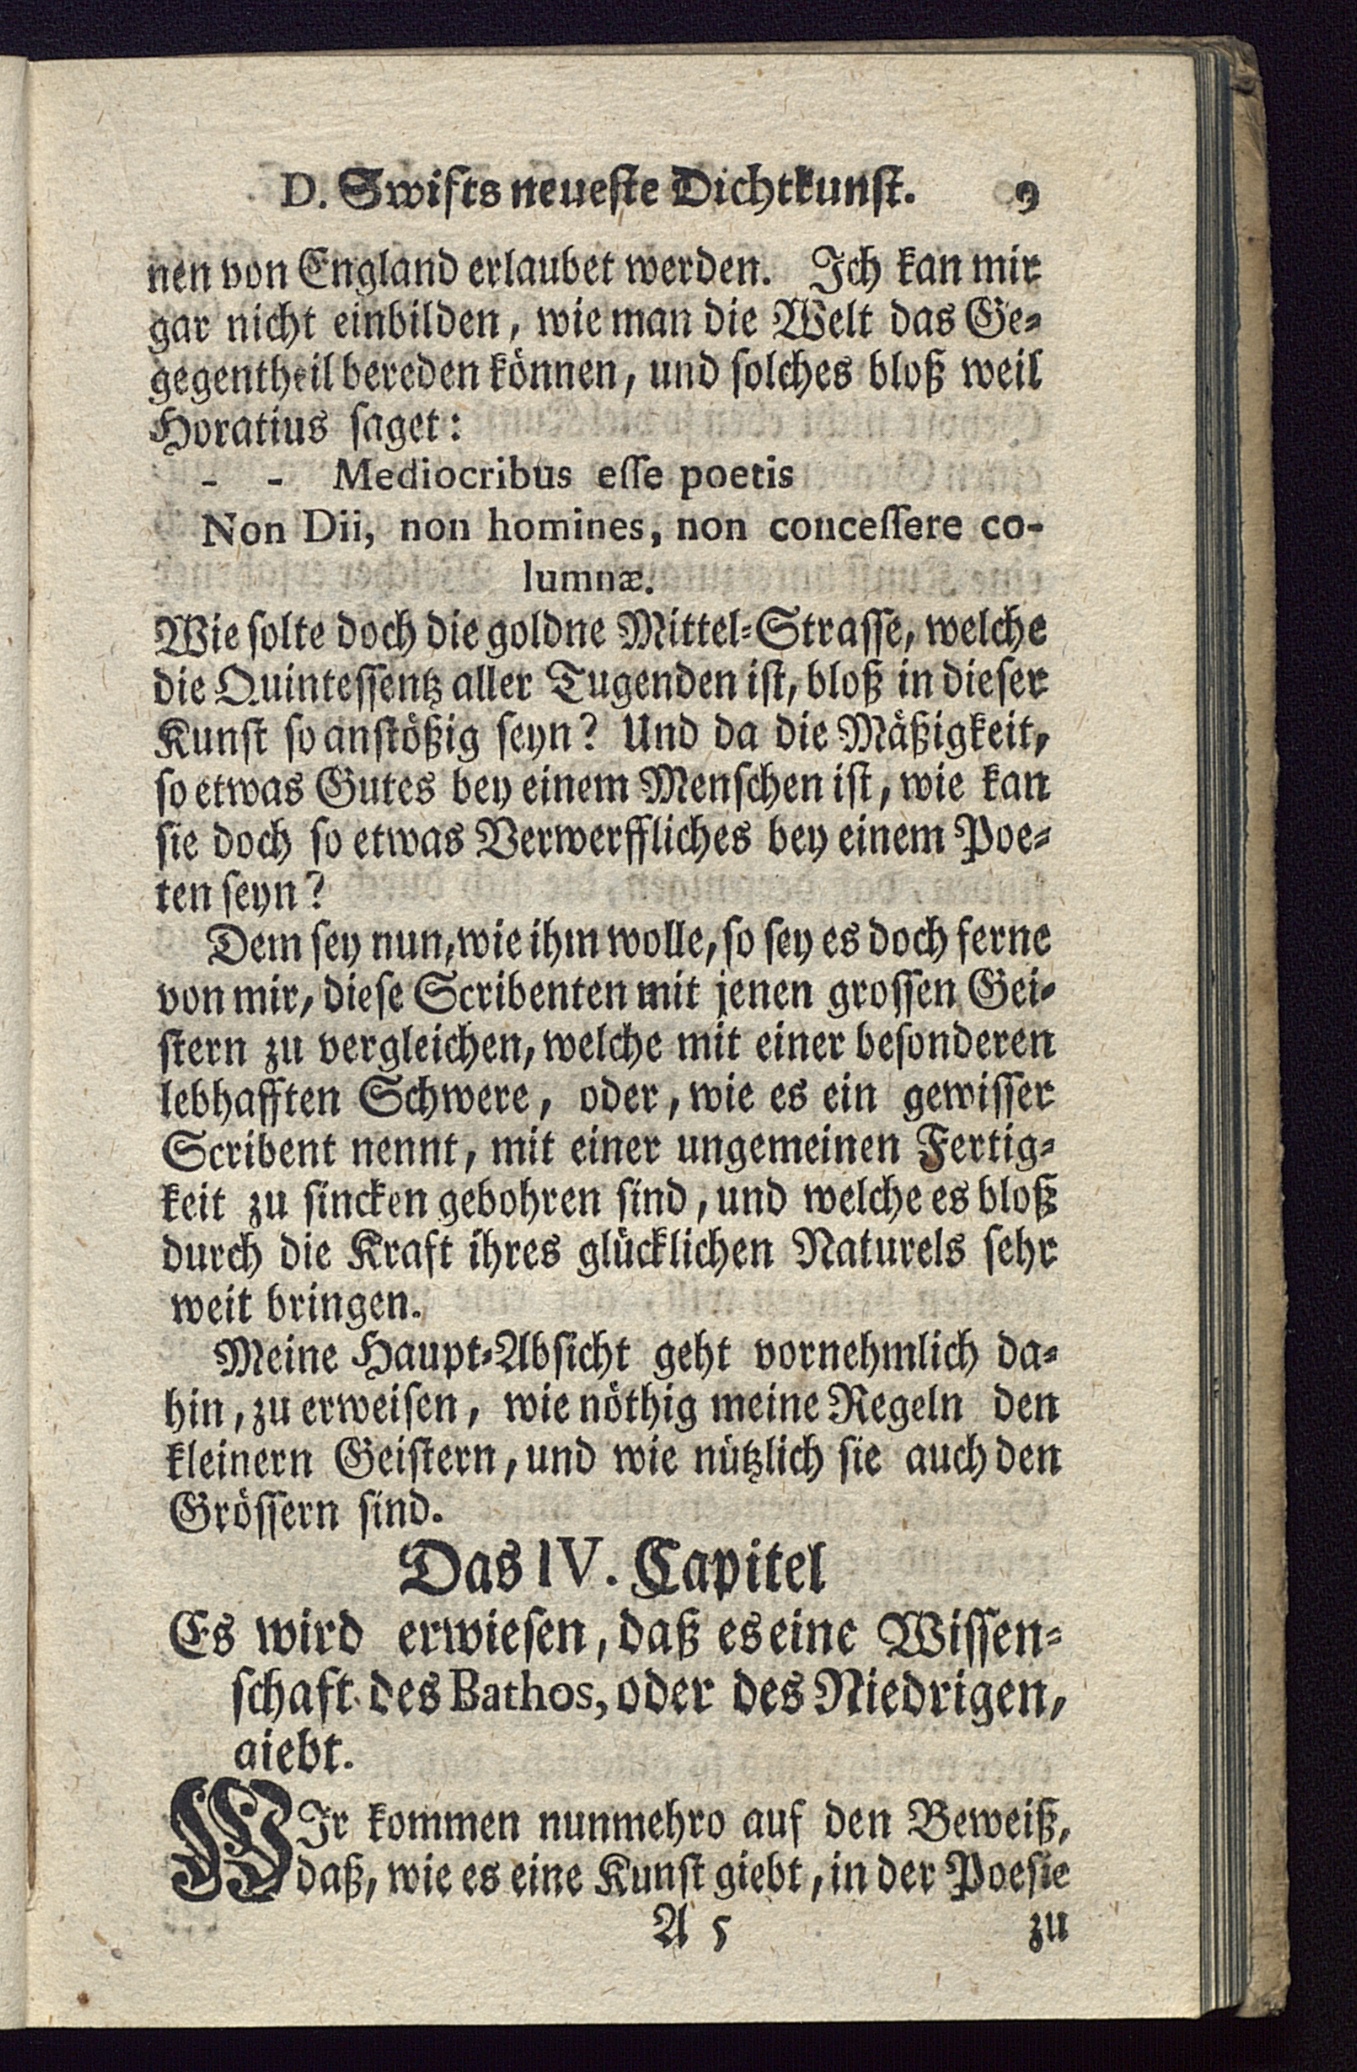 D. Swifts neueste Dichtkunst. 9
nen von England erlaubet werden. Ich kan mir
gar nicht einbilden, wie man die Welt das Ge-
gegentheil bereden können, und solches bloß weil
Horatius saget:
- - Mediocribus esse poetis
Non Dii, non homines, non concessere co-
lumnæ.
Wie solte doch die goldne Mittel-Strasse, welche
die Quintessentz aller Tugenden ist, bloß in dieser
Kunst so anstößig seyn? Und da die Mäßigkeit,
so etwas Gutes bey einem Menschen ist, wie kan
sie doch so etwas Verwerffliches bey einem Poe-
ten seyn?
Dem sey nun, wie ihm wolle, so sey es doch ferne
von mir, diese Scribenten mit jenen grossen Gei-
stern zu vergleichen, welche mit einer besonderen
lebhafften Schwere, oder, wie es ein gewisser
Scribent nennt, mit einer ungemeinen Fertig-
keit zu sincken gebohren sind, und welche es bloß
durch die Kraft ihres glücklichen Naturels sehr
weit bringen.
Meine Haupt-Absicht geht vornehmlich da-
hin, zu erweisen, wie nöthig meine Regeln den
kleinern Geistern, und wie nützlich sie auch den
Grössern sind.
Das IV. Capitel
Es wird erwiesen, daß es eine Wissen-
schaft des Bathos, oder des Niedrigen,
giebt.
WIr kommen nunmehro auf den Beweiß,
daß, wie es eine Kunst giebt, in der Poesie
A 5 zu